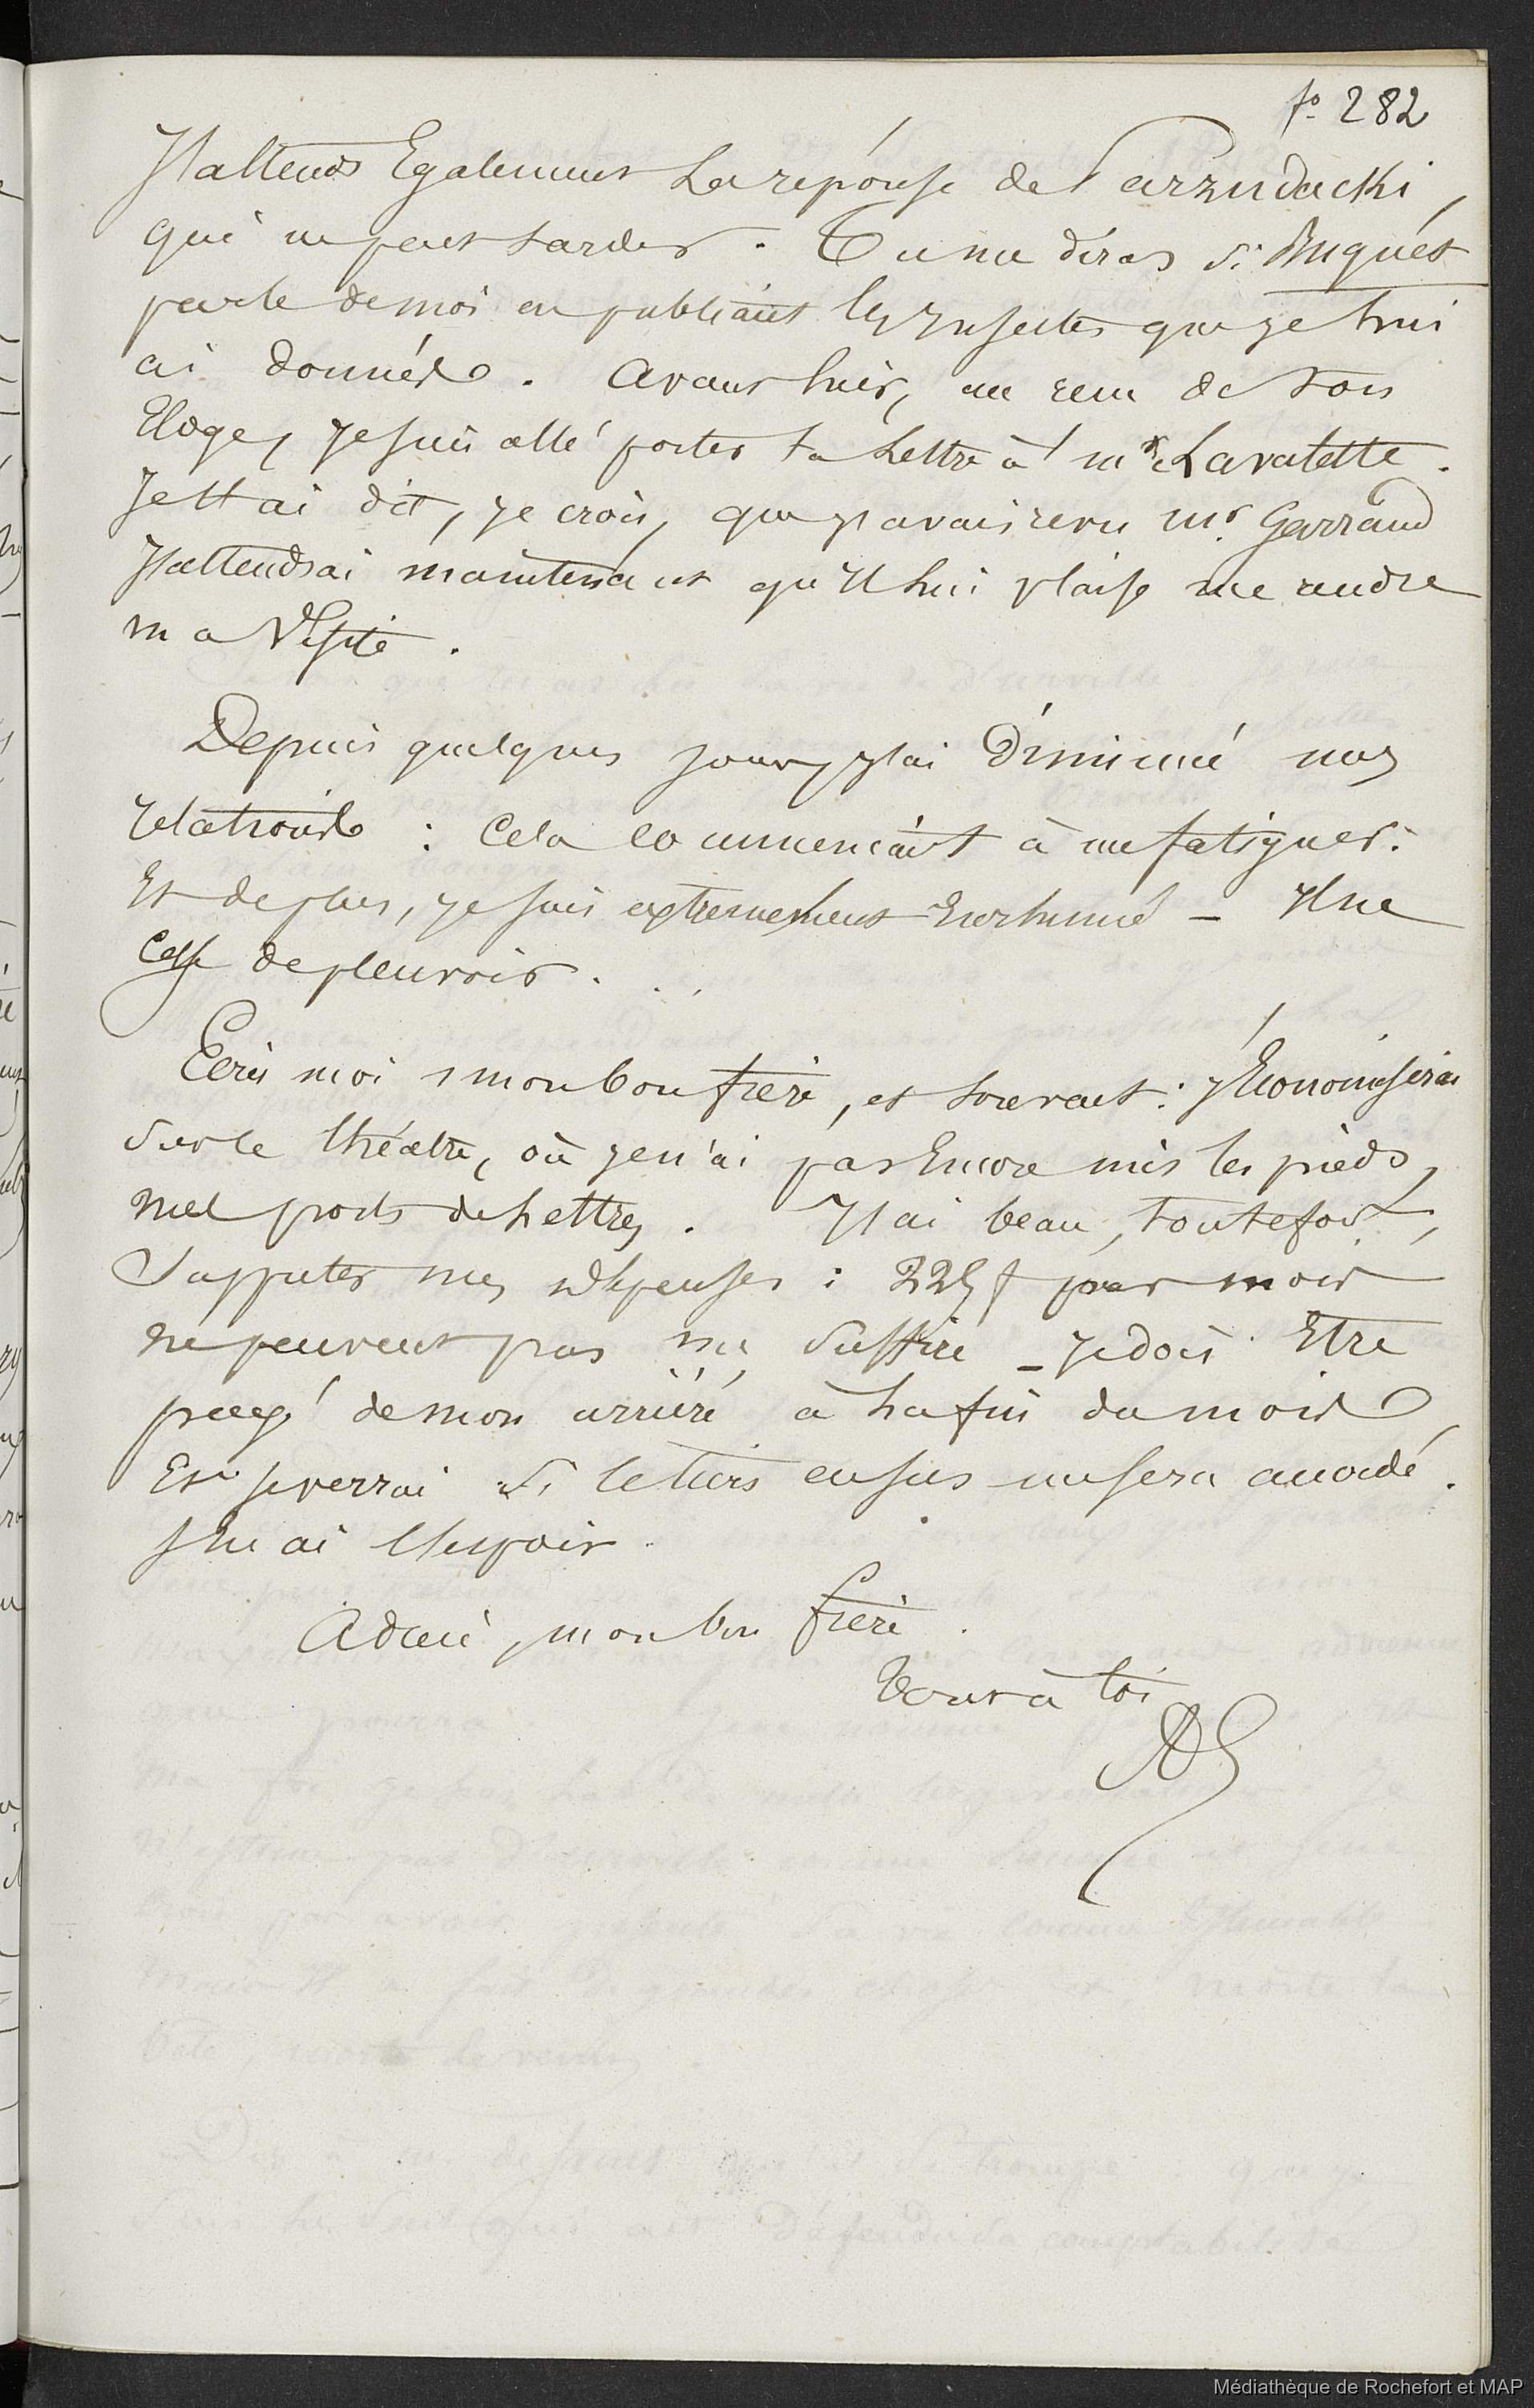 fo 282
J'attends Egalement La réponse de Parzudacki,
qui ne peut tarder. Tu me diras si Buquet
parle de moi en publiant les Insectes que je lui
ai donnés. Avant hier, au reçu de ton
Eloge, je suis allé porter ta Lettre à Mr Lavalette.
Je t'ai dit, je crois, que j'avais revu Mr Garraud
J'attendrai maintenant qu'Il lui plaise me rendre
ma Visite.
Depuis quelques jours, j'ai diminué mes
relations : Cela commençait à me fatiguer.
Et de plus, je suis extremement Enrhumé – Il ne
Cesse de pleuvoir.
Ecris moi mon bon frère, et souvent : J'Economiserai
sur le théatre, où je n'ai pas Encore mis les pieds,
mes ports de Lettres. J'ai beau, toutefois,
supputer mes dépenses : 225 f par mois
ne peuvent pas me suffire – Je dois Etre
payé de mon arriéré à La fin du mois
Et je verrai si le tiers en sus me sera accordé.
J'en ai l'Espoir.
Adieu, mon bon frère.
Tout à toi